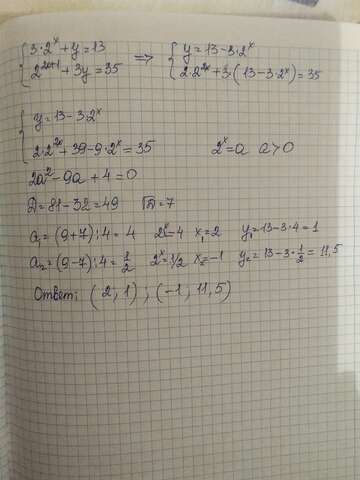 { 3·2^x + y = 13 => { y = 13 - 3·2^x
{ 2^(2x+1) + 3y = 35 { 2·2^(2x) + 3·(13 - 3·2^x) = 35
{ y = 13 - 3·2^x
{ 2·2^(2x) + 39 - 9·2^x = 35 2^x = a a > 0
2a² - 9a + 4 = 0
D = 81 - 32 = 49 √D = 7
a₁ = (9+7):4 = 4 2^x = 4 x₁ = 2 y₁ = 13 - 3·4 = 1
a₂ = (9-7):4 = 1/2 2^x = 1/2 x₂ = -1 y₂ = 13 - 3·1/2 = 11,5
Ответ: (2; 1); (-1; 11,5)